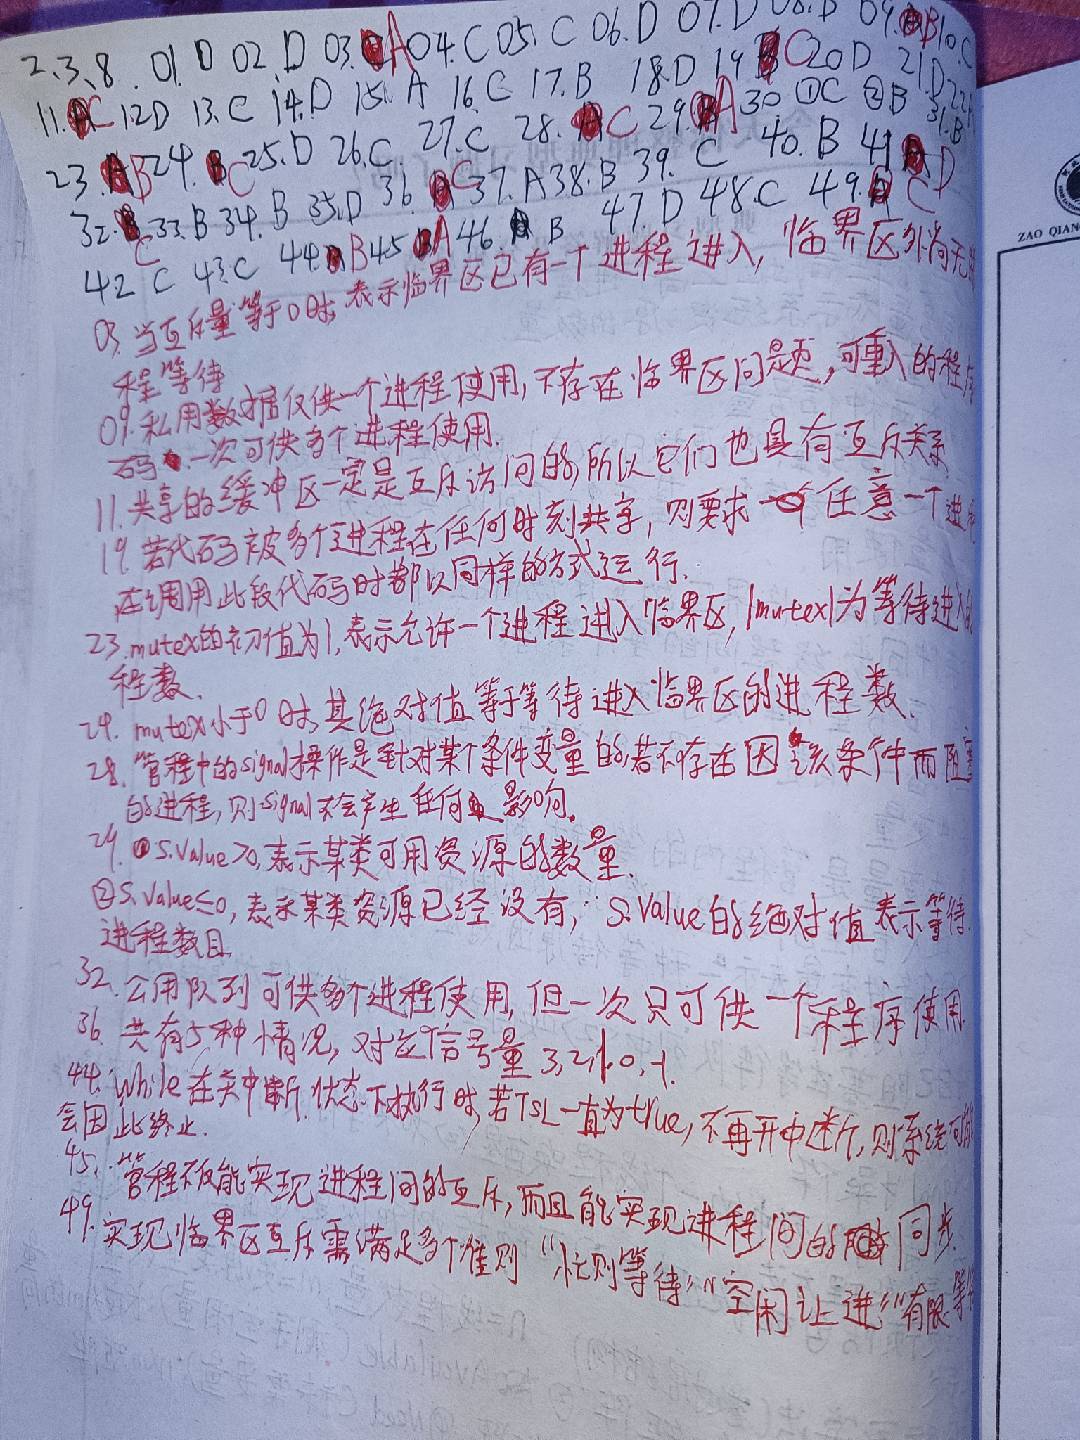 2.3.8. 01. D 02. D 03. A 04. C 05. C 06. D 07. D 08. D 09. B 10. C
11. C 12 D 13. C 14. D 15. A 16. C 17. B 18. D 19. C 20 D 21. D 22.
23. B 24. C 25. D 26. C 27. C 28. C 29. A 30 ①C ②B 31. B
32. C 33. B 34. B 35. D 36. C 37. A 38. B 39. C 40. B 41 D
42 C 43. C 44. B 45 A 46. B 47. D 48. C 49. C
03. 当互斥量等于0时, 表示临界区已有一个进程进入, 临界区外尚无
程等待
09. 私用数据仅供一个进程使用, 不存在临界区问题, 可重入的程序
码一次可供多个进程使用.
11. 共享的缓冲区一定是互斥访问的, 所以它们也具有互斥关系
19. 若代码被多个进程在任何时刻共享, 则要求任意一个进
在调用此段代码时都以同样的方式运行.
23. mutex的初值为1, 表示允许一个进程进入临界区, |mutex|为等待进入
程数.
24. mutex小于0时, 其绝对值等于等待进入临界区的进程数.
28. 管程中的signal操作是针对某个条件变量的, 若不存在因该条件而阻塞
的进程, 则signal不会产生任何影响.
29. ① S.Value>0, 表示某类可用资源的数量.
② S.Value≤0, 表示某类资源已经没有, S.Value的绝对值表示等待
进程数目
32. 公用队列可供多个进程使用, 但一次只可供一个程序使用.
36. 共有5种情况, 对应信号量 3,2,1,0,-1.
44. while在关中断状态下执行时, 若TSL一直为true, 不再开中断, 则系统可能
会因此终止.
45. 管程不仅能实现进程间的互斥, 而且能实现进程间的同步.
49. 实现临界区互斥需满足多个准则 “忙则等待”“空闲让进”“有限等
ZAO QIAN